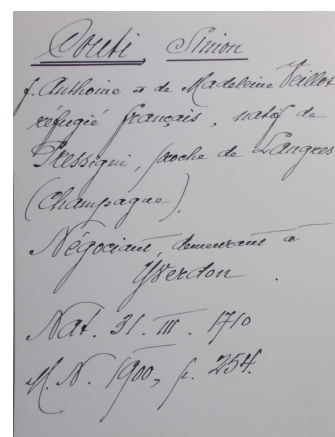 Couti, Simon
f. Anthoine et de Madeleine Veillot
réfugié français, natif de
Pressigni, proche de Langres
(Champagne).
Négociant, demeurant à
Yverdon.
Nat. 31. III. 1710
M. N. 1900, p. 254.